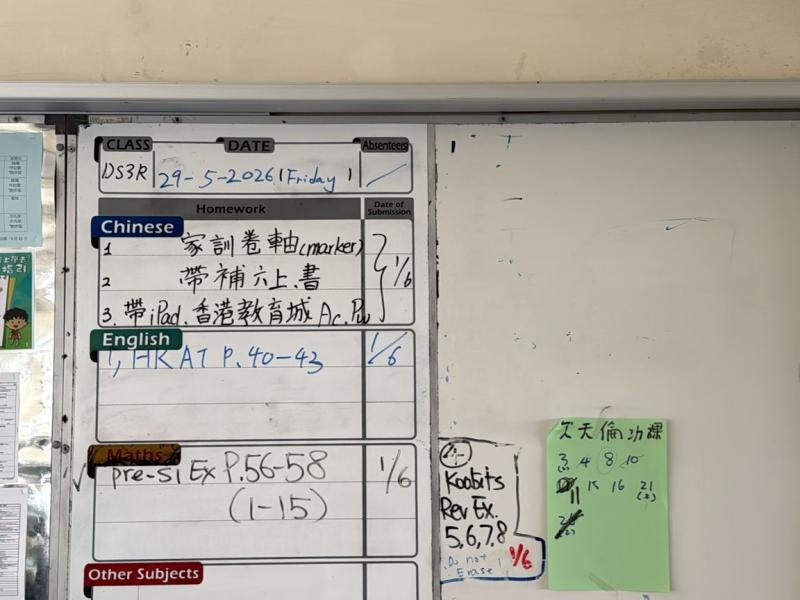 CLASS DATE Absentee(s)
DS3R 29-5-2026 (Friday)
Homework Date of Submission
Chinese
1 家訓卷軸(marker)
2 帶補六上書
3. 帶iPad. 香港教育城 Ac. Pw
1/6
English
1, HKAT P.40-43 1/6
Maths
pre-S1 Ex P.56-58 1/6
(1-15)
Other Subjects
Koobits
Rev Ex.
5,6,7,8
Do not
Erase 1/6
欠天倫功課
3 4 8 10
11 15 16 21
(2)